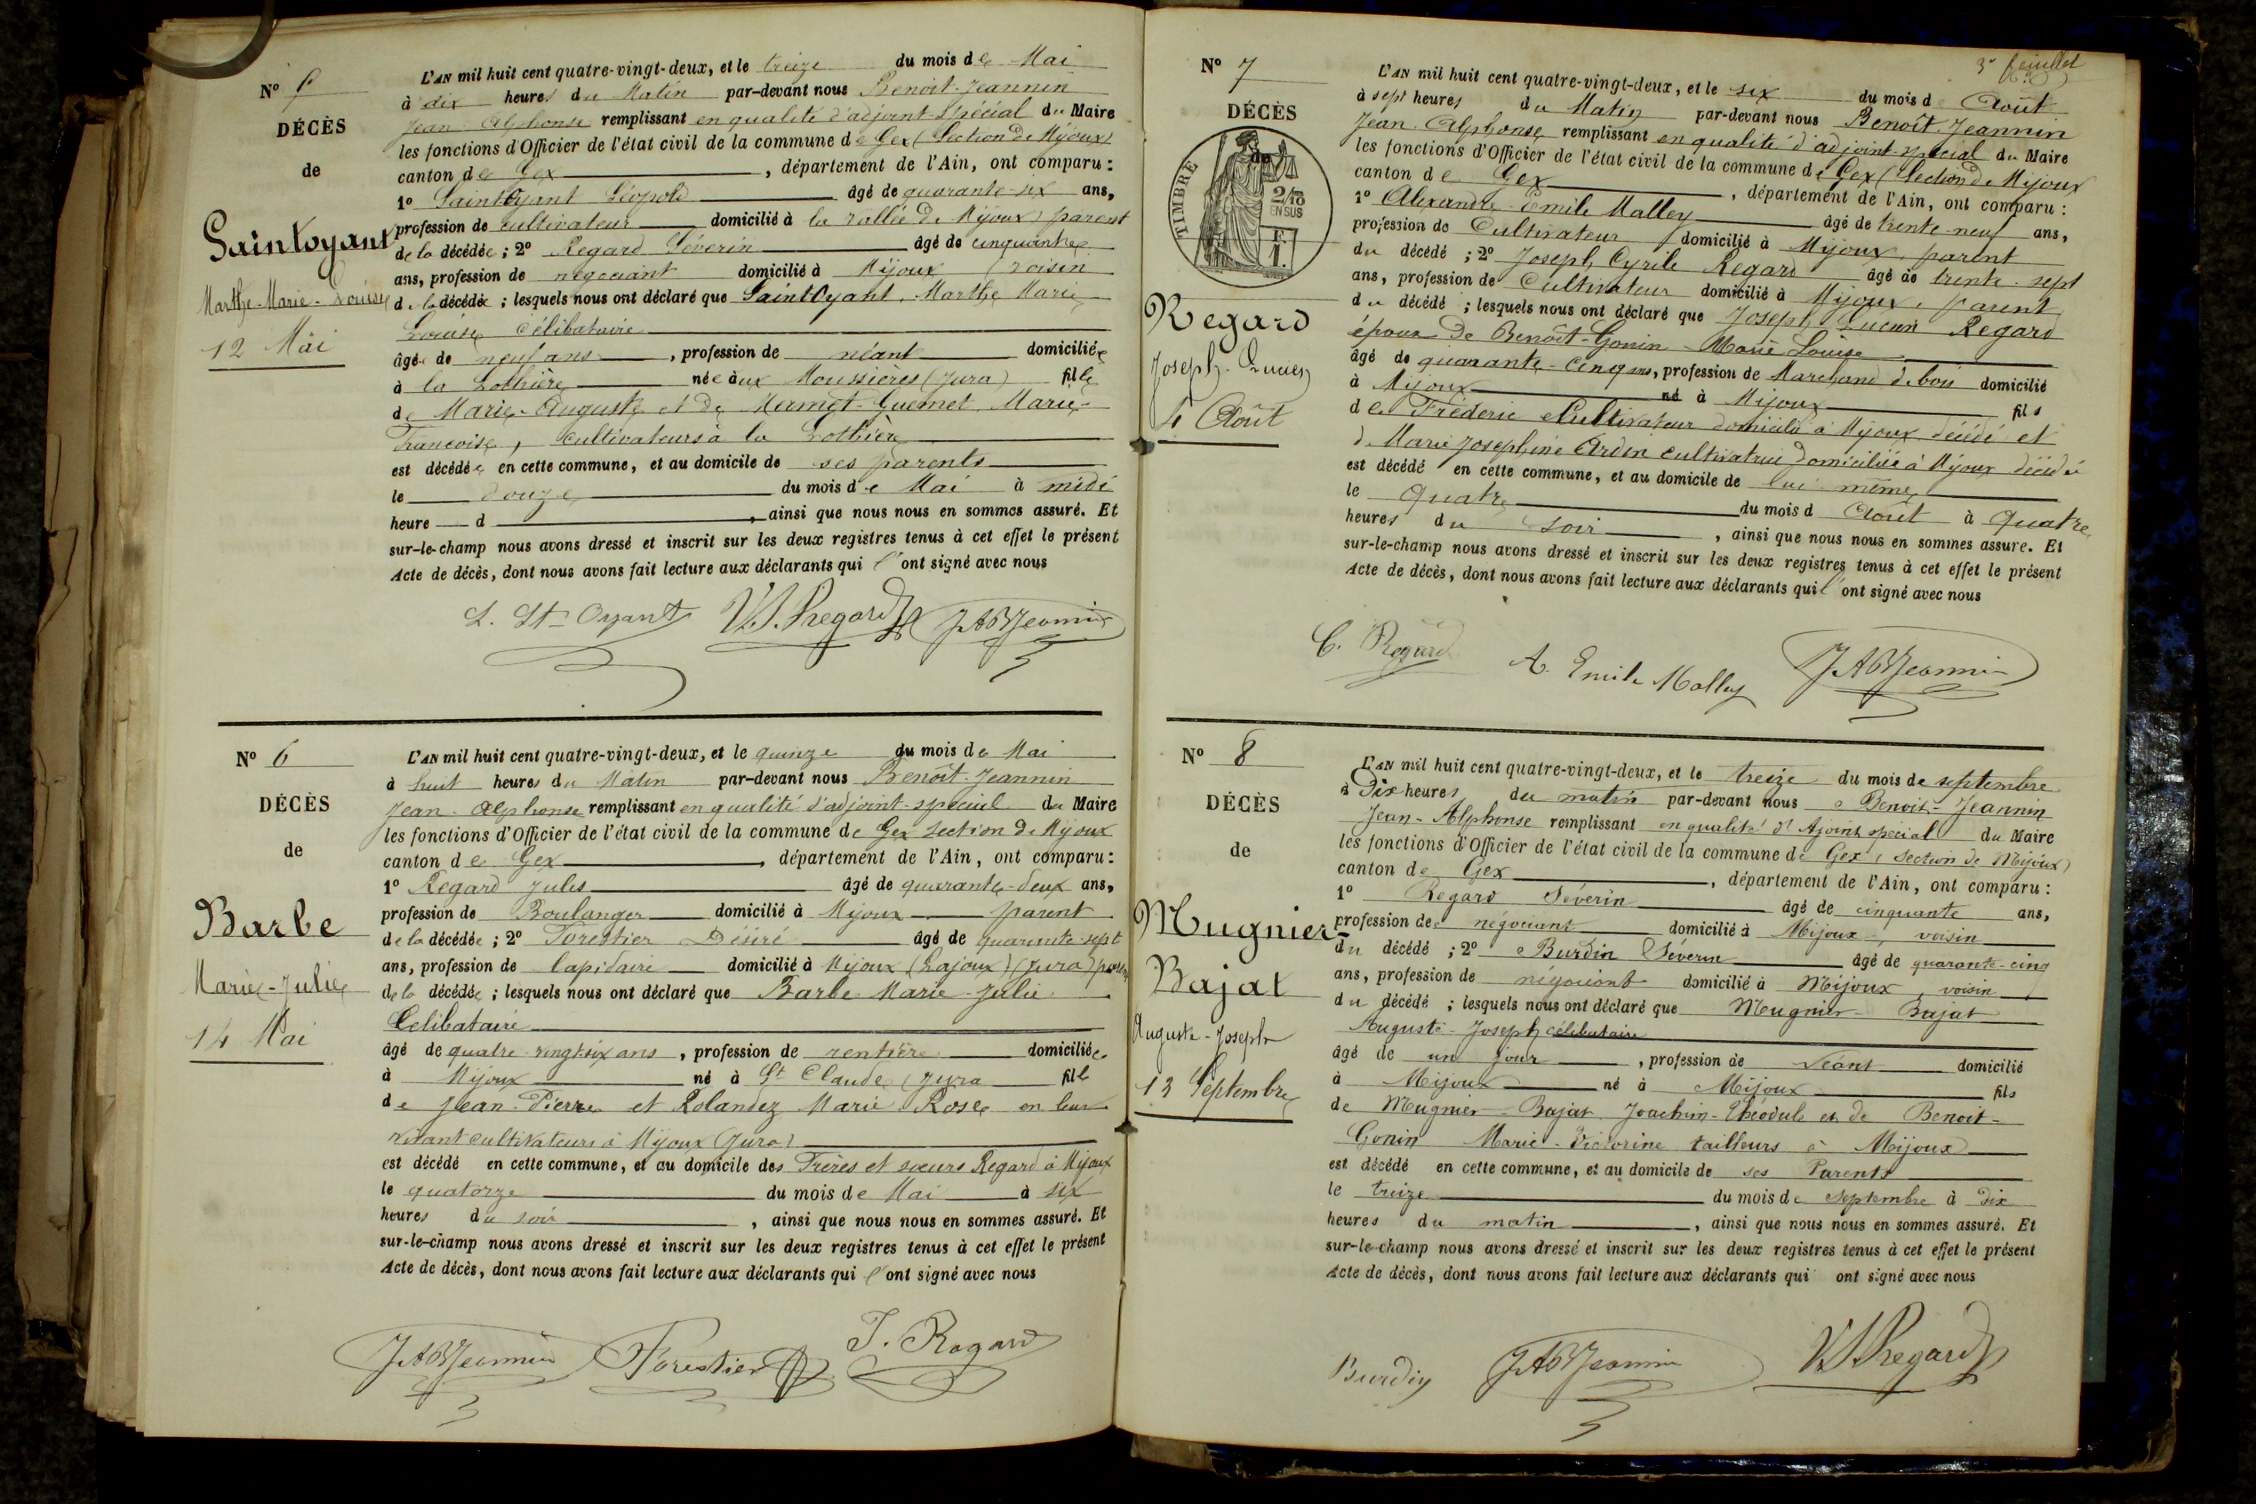 Nº 5
DÉCÈS
de
Saintoyant
Marthe-Marie-Louise
12 Mai
L'AN mil huit cent quatre-vingt-deux, et le treize du mois de Mai
à dix heures du Matin par-devant nous Benoit-Jeannin
Jean-Alphonse remplissant en qualité d'adjoint-spécial du Maire
les fonctions d'Officier de l'état civil de la commune de Gex (Section de Mijoux)
canton de Gex, département de l'Ain, ont comparu :
1º SaintOyant Léopold âgé de quarante-six ans,
profession de cultivateur domicilié à la vallée de Mijoux, parent
de la décédée ; 2º Regard Séverin âgé de cinquante
ans, profession de négociant domicilié à Mijoux (voisin
de la décédée ; lesquels nous ont déclaré que SaintOyant, Marthe Marie
Louise célibataire
âgée de neuf ans, profession de néant domiciliée
à la Lothière née aux Moussières (Jura) fille
de Marie-Auguste et de Mermet-Guemet Marie-
Françoise, cultivateurs à la Lothière
est décédée en cette commune, et au domicile de ses parents
le douze du mois de Mai à midi
heure d, ainsi que nous nous en sommes assuré. Et
sur-le-champ nous avons dressé et inscrit sur les deux registres tenus à cet effet le présent
Acte de décès, dont nous avons fait lecture aux déclarants qui l'ont signé avec nous
L. St-Oyant V.S.Regard JABJeannin
Nº 6
DÉCÈS
de
Barbe
Marie-Julie
14 Mai
L'AN mil huit cent quatre-vingt-deux, et le quinze du mois de Mai
à huit heures du Matin par-devant nous Benoît-Jeannin
Jean-Alphonse remplissant en qualité d'adjoint-spécial du Maire
les fonctions d'Officier de l'état civil de la commune de Gex section de Mijoux
canton de Gex, département de l'Ain, ont comparu :
1º Regard Jules âgé de quarante-deux ans,
profession de Boulanger domicilié à Mijoux parent
de la décédée ; 2º Forestier Désiré âgé de quarante-sept
ans, profession de lapidaire domicilié à Mijoux (Lajoux) (Jura)
de la décédée ; lesquels nous ont déclaré que Barbe Marie-Julie
Célibataire
âgé de quatre-vingt-six ans, profession de rentière domiciliée
à Mijoux né à St Claude (Jura fille
de Jean-Pierre et Rolandez Marie Rose, en leur
vivant cultivateurs à Mijoux (Jura)
est décédé en cette commune, et au domicile des Frères et sœurs Regard à Mijoux
le quatorze du mois de Mai à six
heures du soir, ainsi que nous nous en sommes assuré. Et
sur-le-champ nous avons dressé et inscrit sur les deux registres tenus à cet effet le présent
Acte de décès, dont nous avons fait lecture aux déclarants qui l'ont signé avec nous
JABJeannin Forestier J. Regard
3e feuillet
Nº 7
DÉCÈS
de
TIMBRE
2/10
EN SUS
F.
1.
Regard
Joseph-Lucien
4 Août
L'AN mil huit cent quatre-vingt-deux, et le six du mois d Août
à sept heures du Matin par-devant nous Benoît-Jeannin
Jean-Alphonse remplissant en qualité d'adjoint-spécial du Maire
les fonctions d'Officier de l'état civil de la commune de Gex (Section de Mijoux
canton de Gex, département de l'Ain, ont comparu :
1º Alexandre-Emile Malley âgé de trente-neuf ans,
profession de Cultivateur domicilié à Mijoux, parent
du décédé ; 2º Joseph Cyrile Regard âgé de trente-sept
ans, profession de Cultivateur domicilié à Mijoux, parent
du décédé ; lesquels nous ont déclaré que Joseph Lucien Regard
époux de Benoît-Gonin Marie Louise
âgé de quarante-cinq ans, profession de Marchand de bois domicilié
à Mijoux né à Mijoux fils
de Frédéric Cultivateur domicilié à Mijoux décédé et
d Marie Josephine Ardin cultivatrice domiciliée à Mijoux décédée
est décédé en cette commune, et au domicile de lui même
le Quatre du mois d Août à Quatre
heures du soir, ainsi que nous nous en sommes assuré. Et
sur-le-champ nous avons dressé et inscrit sur les deux registres tenus à cet effet le présent
Acte de décès, dont nous avons fait lecture aux déclarants qui l'ont signé avec nous
C. Regard A. Emile Malley JABJeannin
Nº 8
DÉCÈS
de
Mugnier-
Bajat
Auguste-Joseph
13 Septembre
L'AN mil huit cent quatre-vingt-deux, et le treize du mois de septembre
à Dix heures du matin par-devant nous Benoit-Jeannin
Jean-Alphonse remplissant en qualité d'Ajoint spécial du Maire
les fonctions d'Officier de l'état civil de la commune de Gex (section de Mijoux)
canton de Gex, département de l'Ain, ont comparu :
1º Regard Séverin âgé de cinquante ans,
profession de négociant domicilié à Mijoux, voisin
du décédé ; 2º Burdin Séverin âgé de quarante-cinq
ans, profession de négociant domicilié à Mijoux, voisin
du décédé ; lesquels nous ont déclaré que Mugnier-Bajat
Auguste-Joseph célibataire
âgé de un jour, profession de Néant domicilié
à Mijoux né à Mijoux fils
de Mugnier-Bajat Joachim-Théodule et de Benoit-
Gonin Marie-Victorine tailleurs à Mijoux
est décédé en cette commune, et au domicile de ses Parents
le treize du mois de septembre à Dix
heures du matin, ainsi que nous nous en sommes assuré. Et
sur-le-champ nous avons dressé et inscrit sur les deux registres tenus à cet effet le présent
Acte de décès, dont nous avons fait lecture aux déclarants qui ont signé avec nous
Burdin JABJeannin V.S.Regard